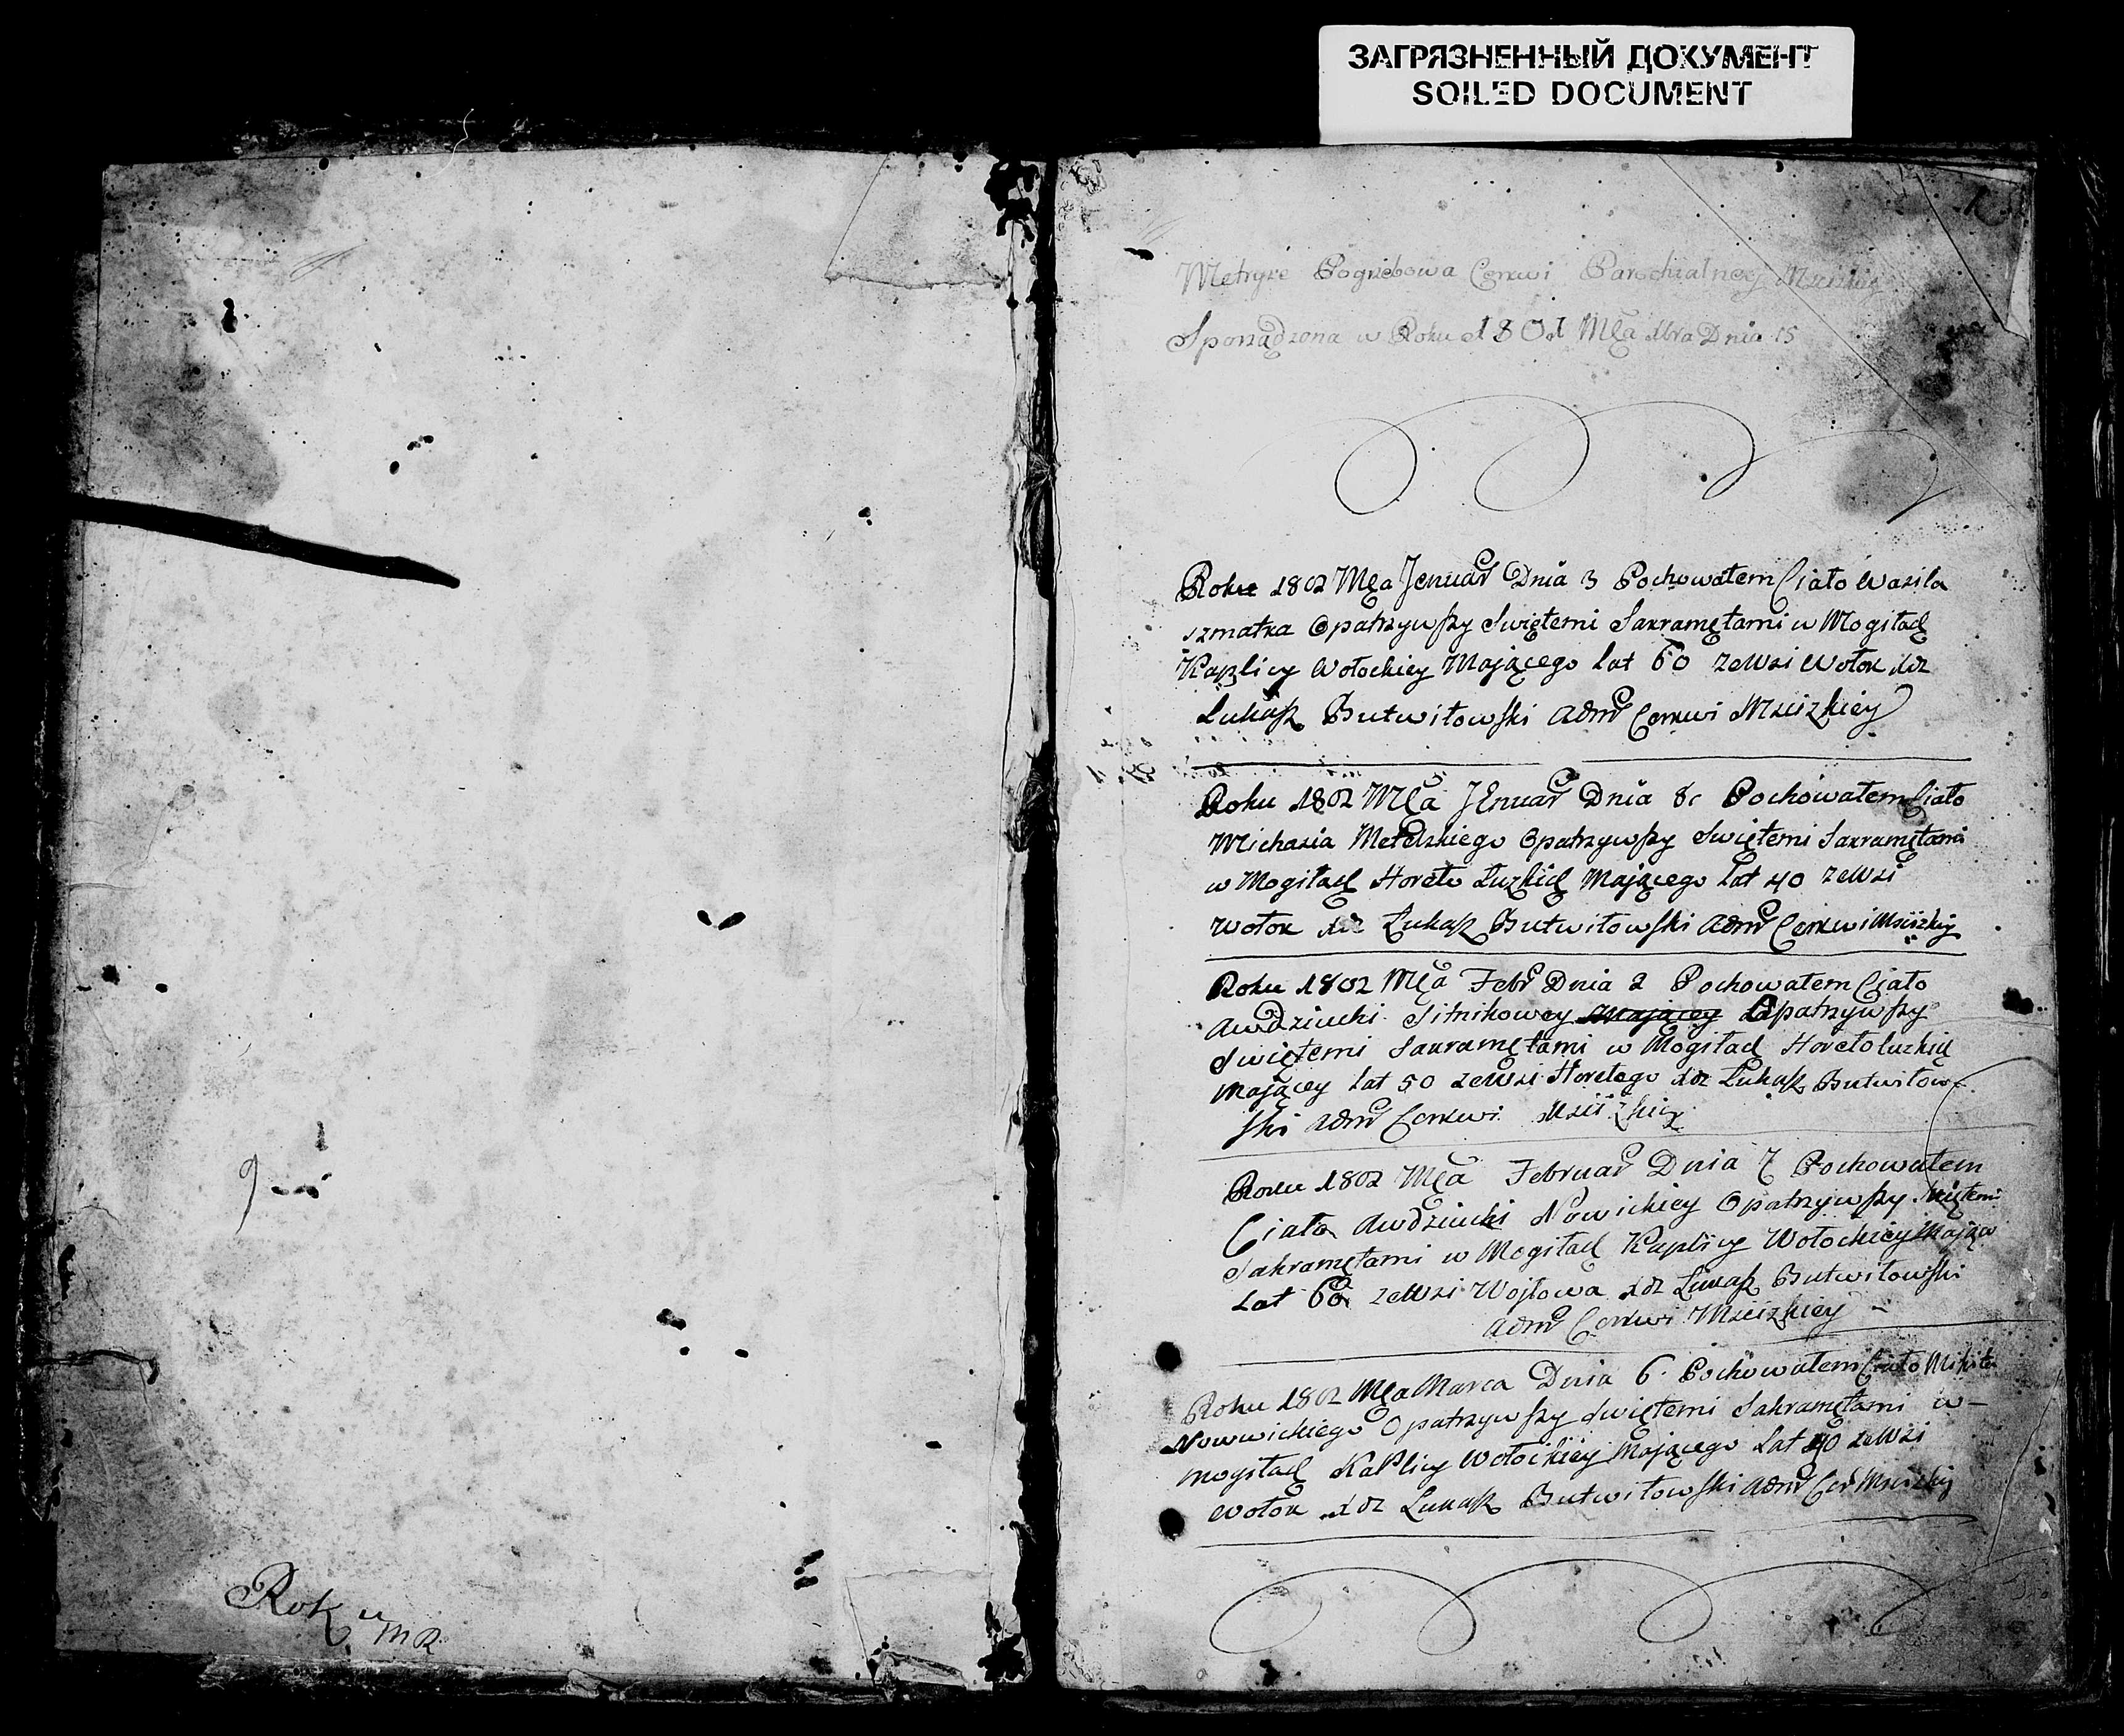 ЗАГРЯЗНЕННЫЙ ДОКУМЕНТ
SOILED DOCUMENT
1
Metryke Pogrzebowa Cerkwi Parochialney
Sporządzona w Roku 1801 Mca Xbra Dnia 15
Roku 1802 Mca Jenuar Dnia 3 Pochowałem Ciało Wasila
szmatka Opatrzywszy Swiętemi Sakramętami w Mogiłach
Kaplicy Wołockiey Mającego lat 60 zewsi Wołok xdz
Łukasz Butwiłowski adm Cerkwi Mscizkiey
Roku 1802 Mca Jenuar Dnia 8 Pochowałem Ciało
Michasia Metelskiego Opatrzywszy Swiętemi Sakramętami
w Mogiłach Horeło Łuzkich Mającego Lat 40 zewsi
Wołok xdz Łukasz Butwiłowski adm Cerkwi Msciizkiy
Roku 1802 Mca Febr Dnia 2 Pochowałem Ciało
Awdziuchi Sitnikowey Mającey Opatrzywszy
Swiętemi Sakramętami w Mogiłach Horełołuzkich
Mającey Lat 50 zewsi Horełego xdz Łukasz Butwiłow
ski adm Cerkwi Msciizkiey
Roku 1802 Mca Februar Dnia 7 Pochowałem
Ciało Awdziuchi Nowickiey Opatrzywszy Swiętemi
Sakramętami w Mogiłach Kaplicy Wołockiey
Lat 60 zewsi Wojtowa xdz Łukasz Butwiłowski
adm Cerkwi Mscizkiey
Roku 1802 Mca Marca Dnia 6 Pochowałem Ciało
Nowickiego Opatrzywszy Swiętemi Sakramętami w
mogiłach Kaplicy Wołockiey Mającego Lat 40 zewsi
Wołok xdz Łukasz Butwiłowski adm Cer Mscizkiy
Roku
MR